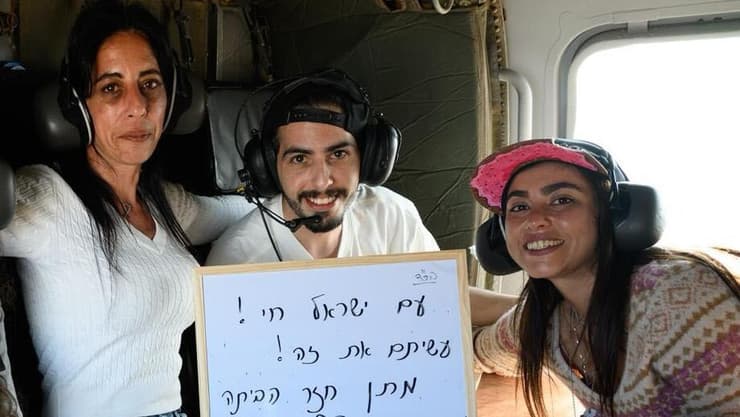 בס"ד
עם ישראל חי !
עשיתם את זה !
מתן חזר הביתה